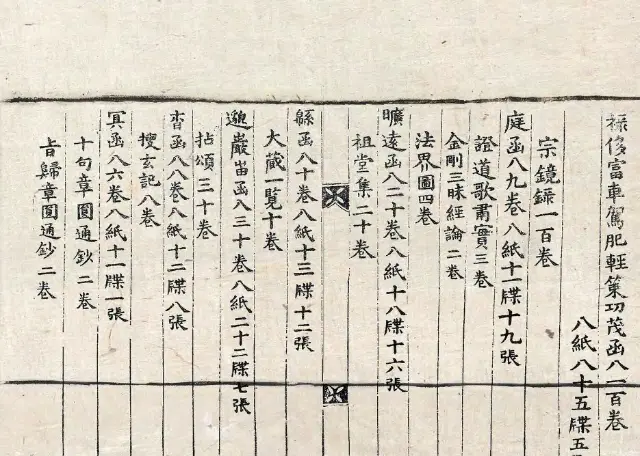 禄侈富車駕肥輕策功茂函入一百卷
入紙八十五牒五
宗鏡錄一百卷
庭函入九卷入紙十一牒十九張
證道歌事實三卷
金剛三昧經論二卷
法界圖四卷
曠遠函入二十卷入紙十八牒十六張
祖堂集二十卷
緜函入十卷入紙十三牒十二張
大藏一覧十卷
邈巖岫函入三十卷入紙二十二牒七張
拈頌三十卷
杳函入八卷入紙十二牒八張
搜玄記八卷
冥函入六卷入紙十一牒一張
十句章圓通鈔二卷
旨歸章圓通鈔二卷